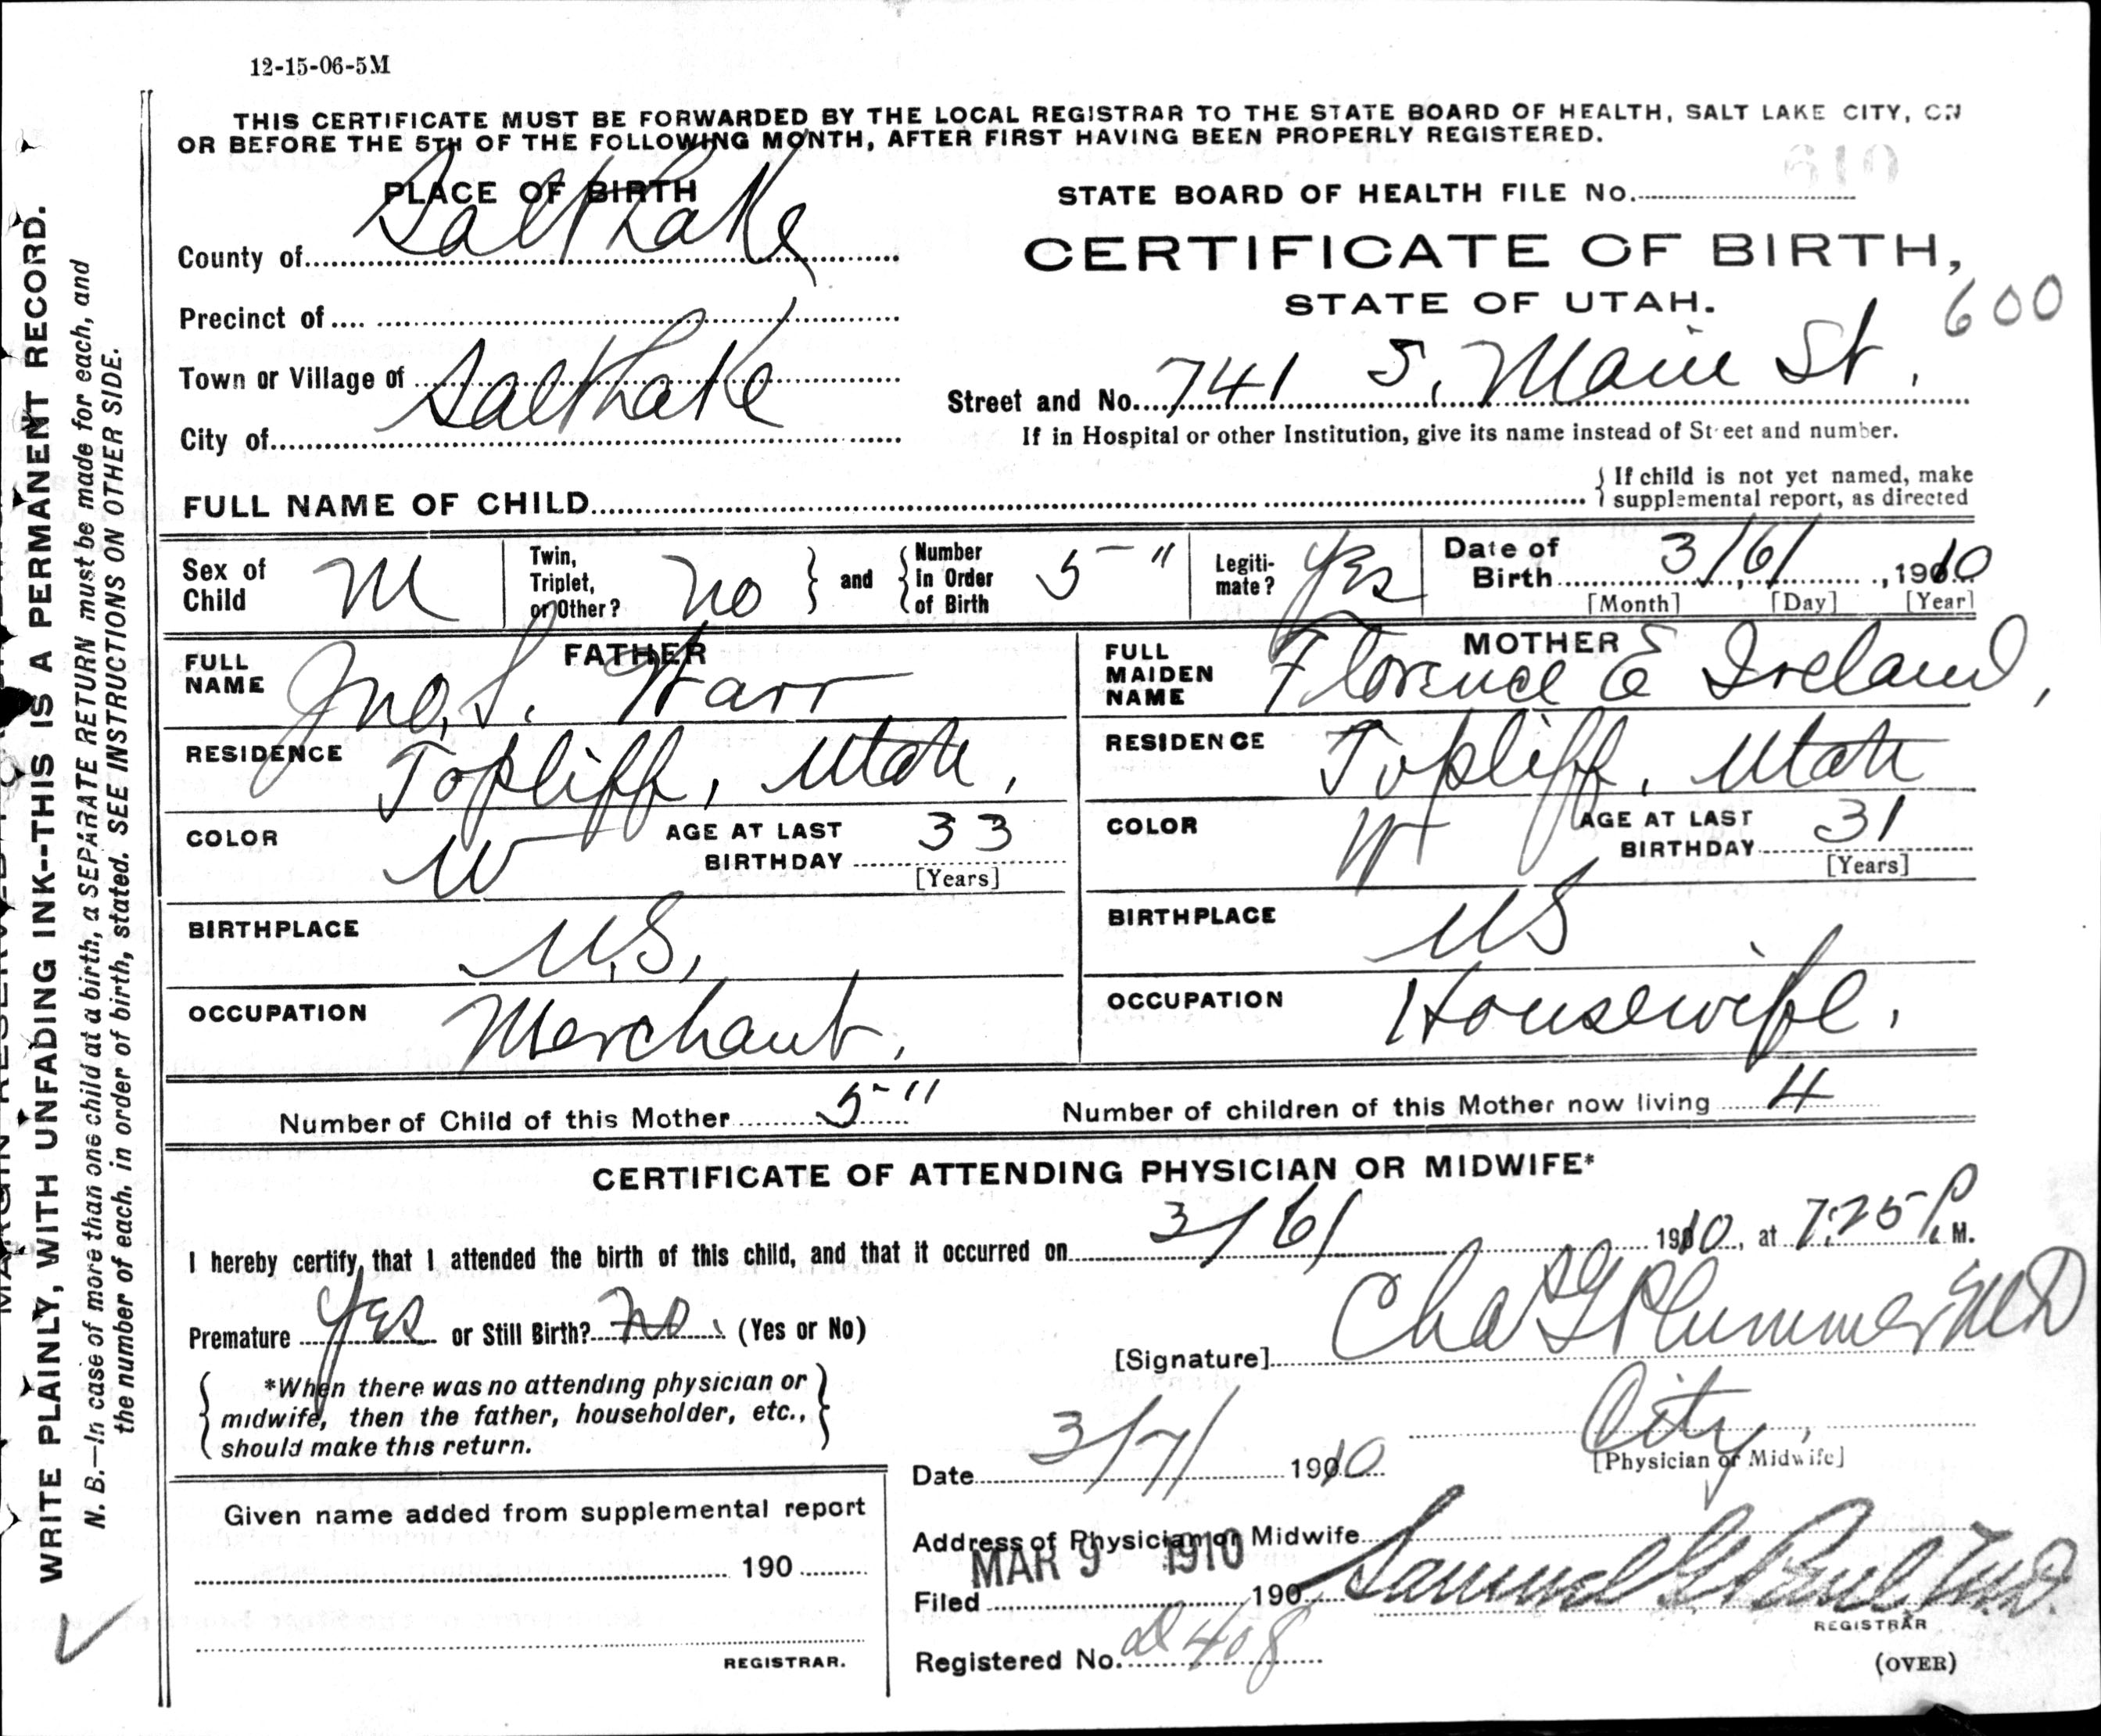 12-15-06-5M
THIS CERTIFICATE MUST BE FORWARDED BY THE LOCAL REGISTRAR TO THE STATE BOARD OF HEALTH, SALT LAKE CITY, ON
OR BEFORE THE 5TH OF THE FOLLOWING MONTH, AFTER FIRST HAVING BEEN PROPERLY REGISTERED.
PLACE OF BIRTH
County of Salt Lake
Precinct of
Town or Village of
City of Salt Lake
STATE BOARD OF HEALTH FILE No.
CERTIFICATE OF BIRTH,
STATE OF UTAH.
600
Street and No. 741 S. Main St.
If in Hospital or other Institution, give its name instead of Street and number.
FULL NAME OF CHILD
{ If child is not yet named, make
supplemental report, as directed
Sex of Child M
Twin, Triplet, or Other? No } and { Number In Order of Birth 5"
Legitimate? Yes
Date of Birth 3/6/, 1910
[Month] [Day] [Year]
FATHER
FULL NAME Jno, S. Harr
RESIDENCE Topliff, Utah,
COLOR W AGE AT LAST BIRTHDAY 33
[Years]
BIRTHPLACE U.S.
OCCUPATION Merchant.
MOTHER
FULL MAIDEN NAME Florence E Ireland,
RESIDENCE Topliff, Utah
COLOR W AGE AT LAST BIRTHDAY 31
[Years]
BIRTHPLACE US
OCCUPATION Housewife.
Number of Child of this Mother 5" Number of children of this Mother now living 4
CERTIFICATE OF ATTENDING PHYSICIAN OR MIDWIFE*
I hereby certify, that I attended the birth of this child, and that it occurred on 3/6/ 1910, at 7:25 P. M.
Premature Yes or Still Birth? No. (Yes or No)
{ *When there was no attending physician or
midwife, then the father, householder, etc.,
should make this return. }
[Signature] Chas G Plummer MD
City,
[Physician or Midwife]
Date 3/7/ 1910
Address of Physician or Midwife
Filed MAR 9 1910 190 Samuel G Paul M.D.
REGISTRAR
Registered No. D 408
(OVER)
Given name added from supplemental report
190
REGISTRAR.
WRITE PLAINLY, WITH UNFADING INK--THIS IS A PERMANENT RECORD.
N. B.—In case of more than one child at a birth, a SEPARATE RETURN must be made for each, and
the number of each, in order of birth, stated. SEE INSTRUCTIONS ON OTHER SIDE.